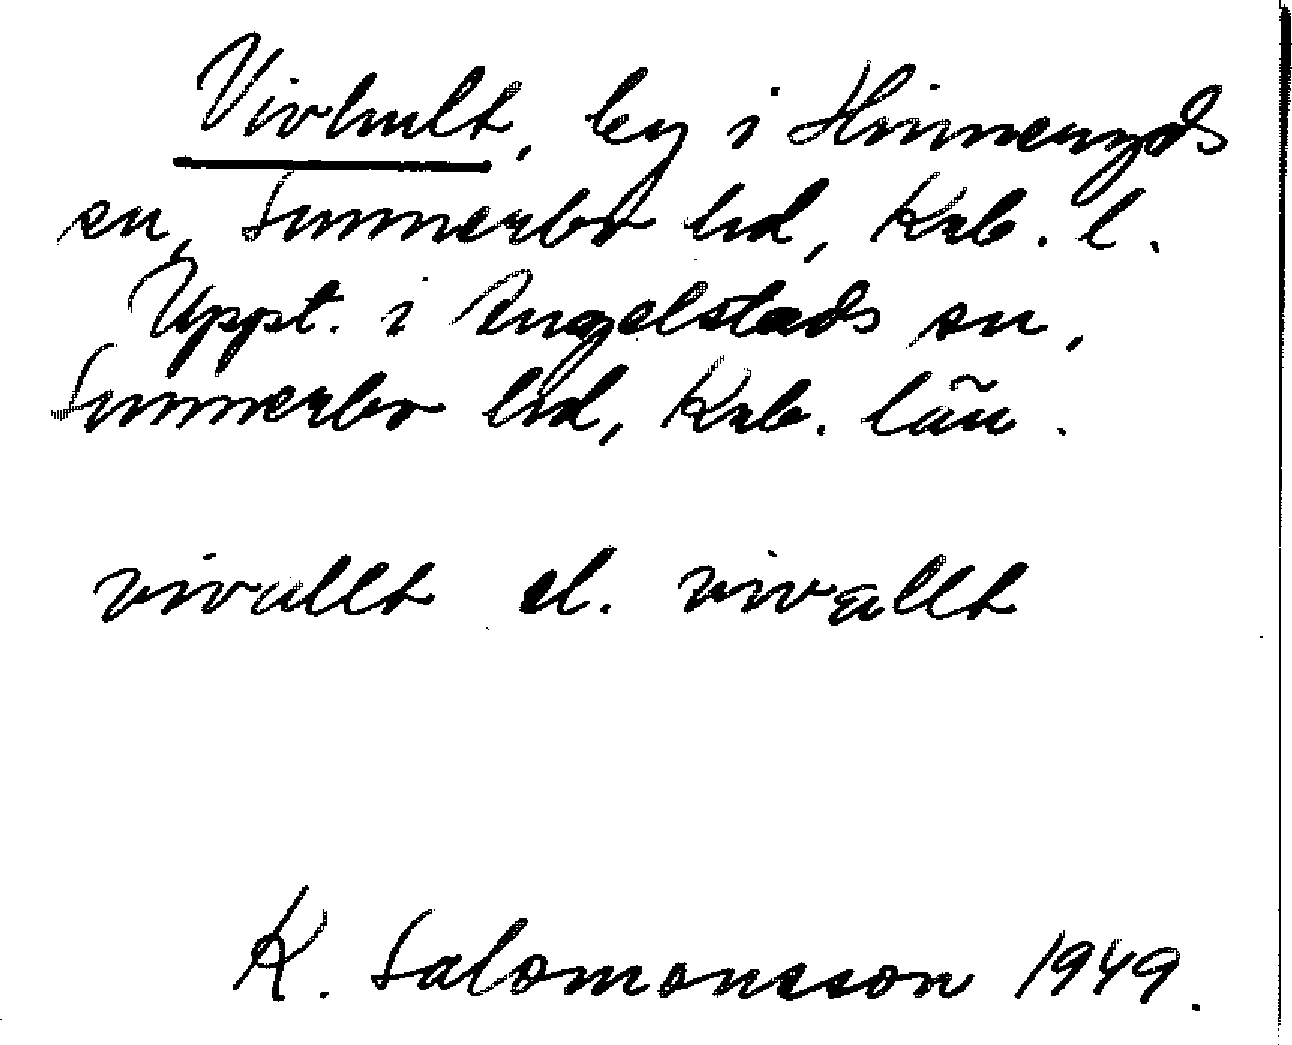 Vivhult, by i Hinneryds
sn, Sunnerbo hd, Krb. l.
Uppt. i Angelstads sn,
Sunnerbo hd, Krb. län.
vivullt el. vivallt
K. Salomonsson 1949.